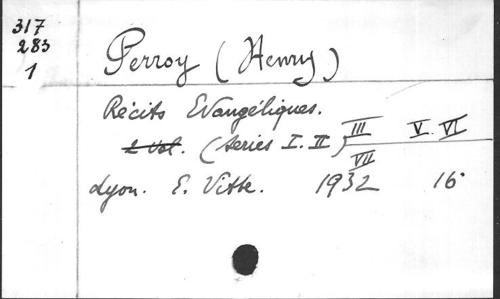 317
283
1
Perroy (Henry)
Récits Evangéliques.
2 Vol. (series I. II) III V. VI
VII
Lyon. E. Vitte. 1932 16°